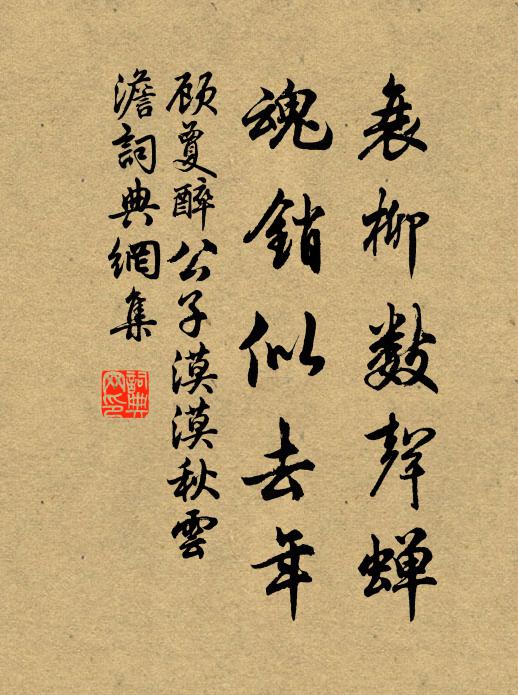 衰柳数聲蝉
魂銷似去年
顾夐醉公子漠漠秋雲
澹詞典網集
詞典网印